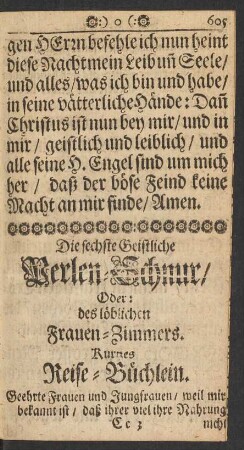 :) o (: 605
gen HErꝛn befehle ich nun heint
diese Nacht mein Leib uñ Seele/
und alles/was ich bin und habe/
in seine vätterliche Hände: Dañ
Christus ist nun bey mir/ und in
mir/ geistlich und leiblich/ und
alle seine H. Engel sind um mich
her/ daß der böse Feind keine
Macht an mir finde/ Amen.
Die sechste Geistliche
Perlen-Schnur/
Oder:
des löblichen
Frauen-Zimmers.
Kurtzes
Reise-Büchlein.
Geehrte Frauen und Jungfrauen/ weil mir
bekannt ist/ daß ihrer viel ihre Nahrung
Cc 3 nicht